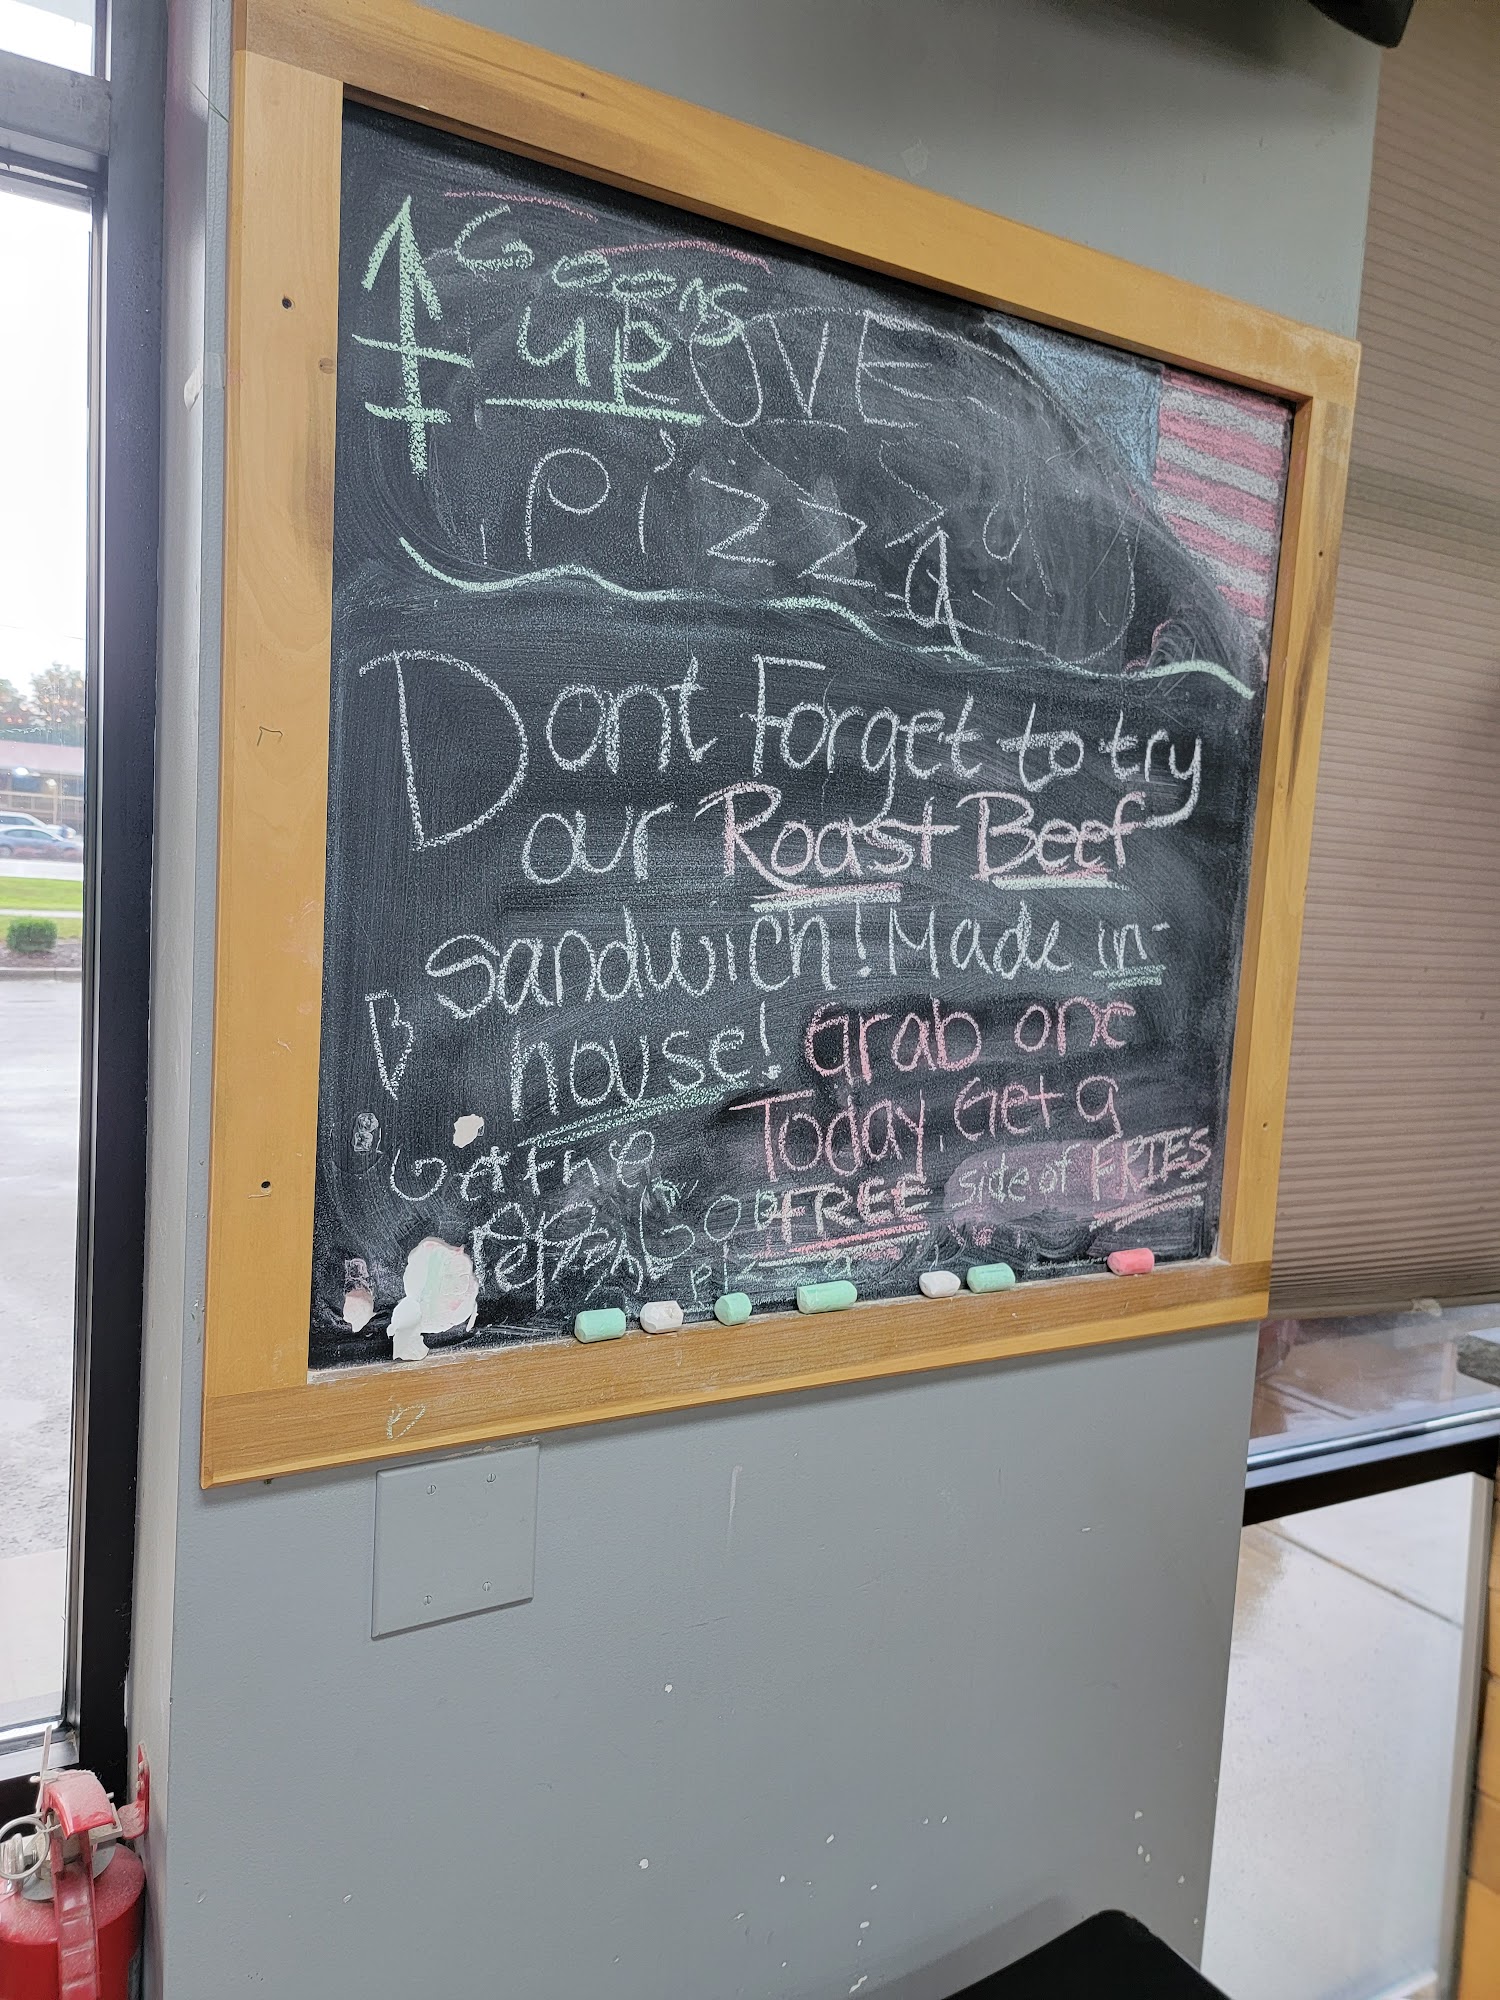 Goons
up
OVE
Pizza
Dont Forget to try
our Roast Beef
Sandwich! Made in-
house! Grab one
Today, Get a
FREE side of FRIES
B